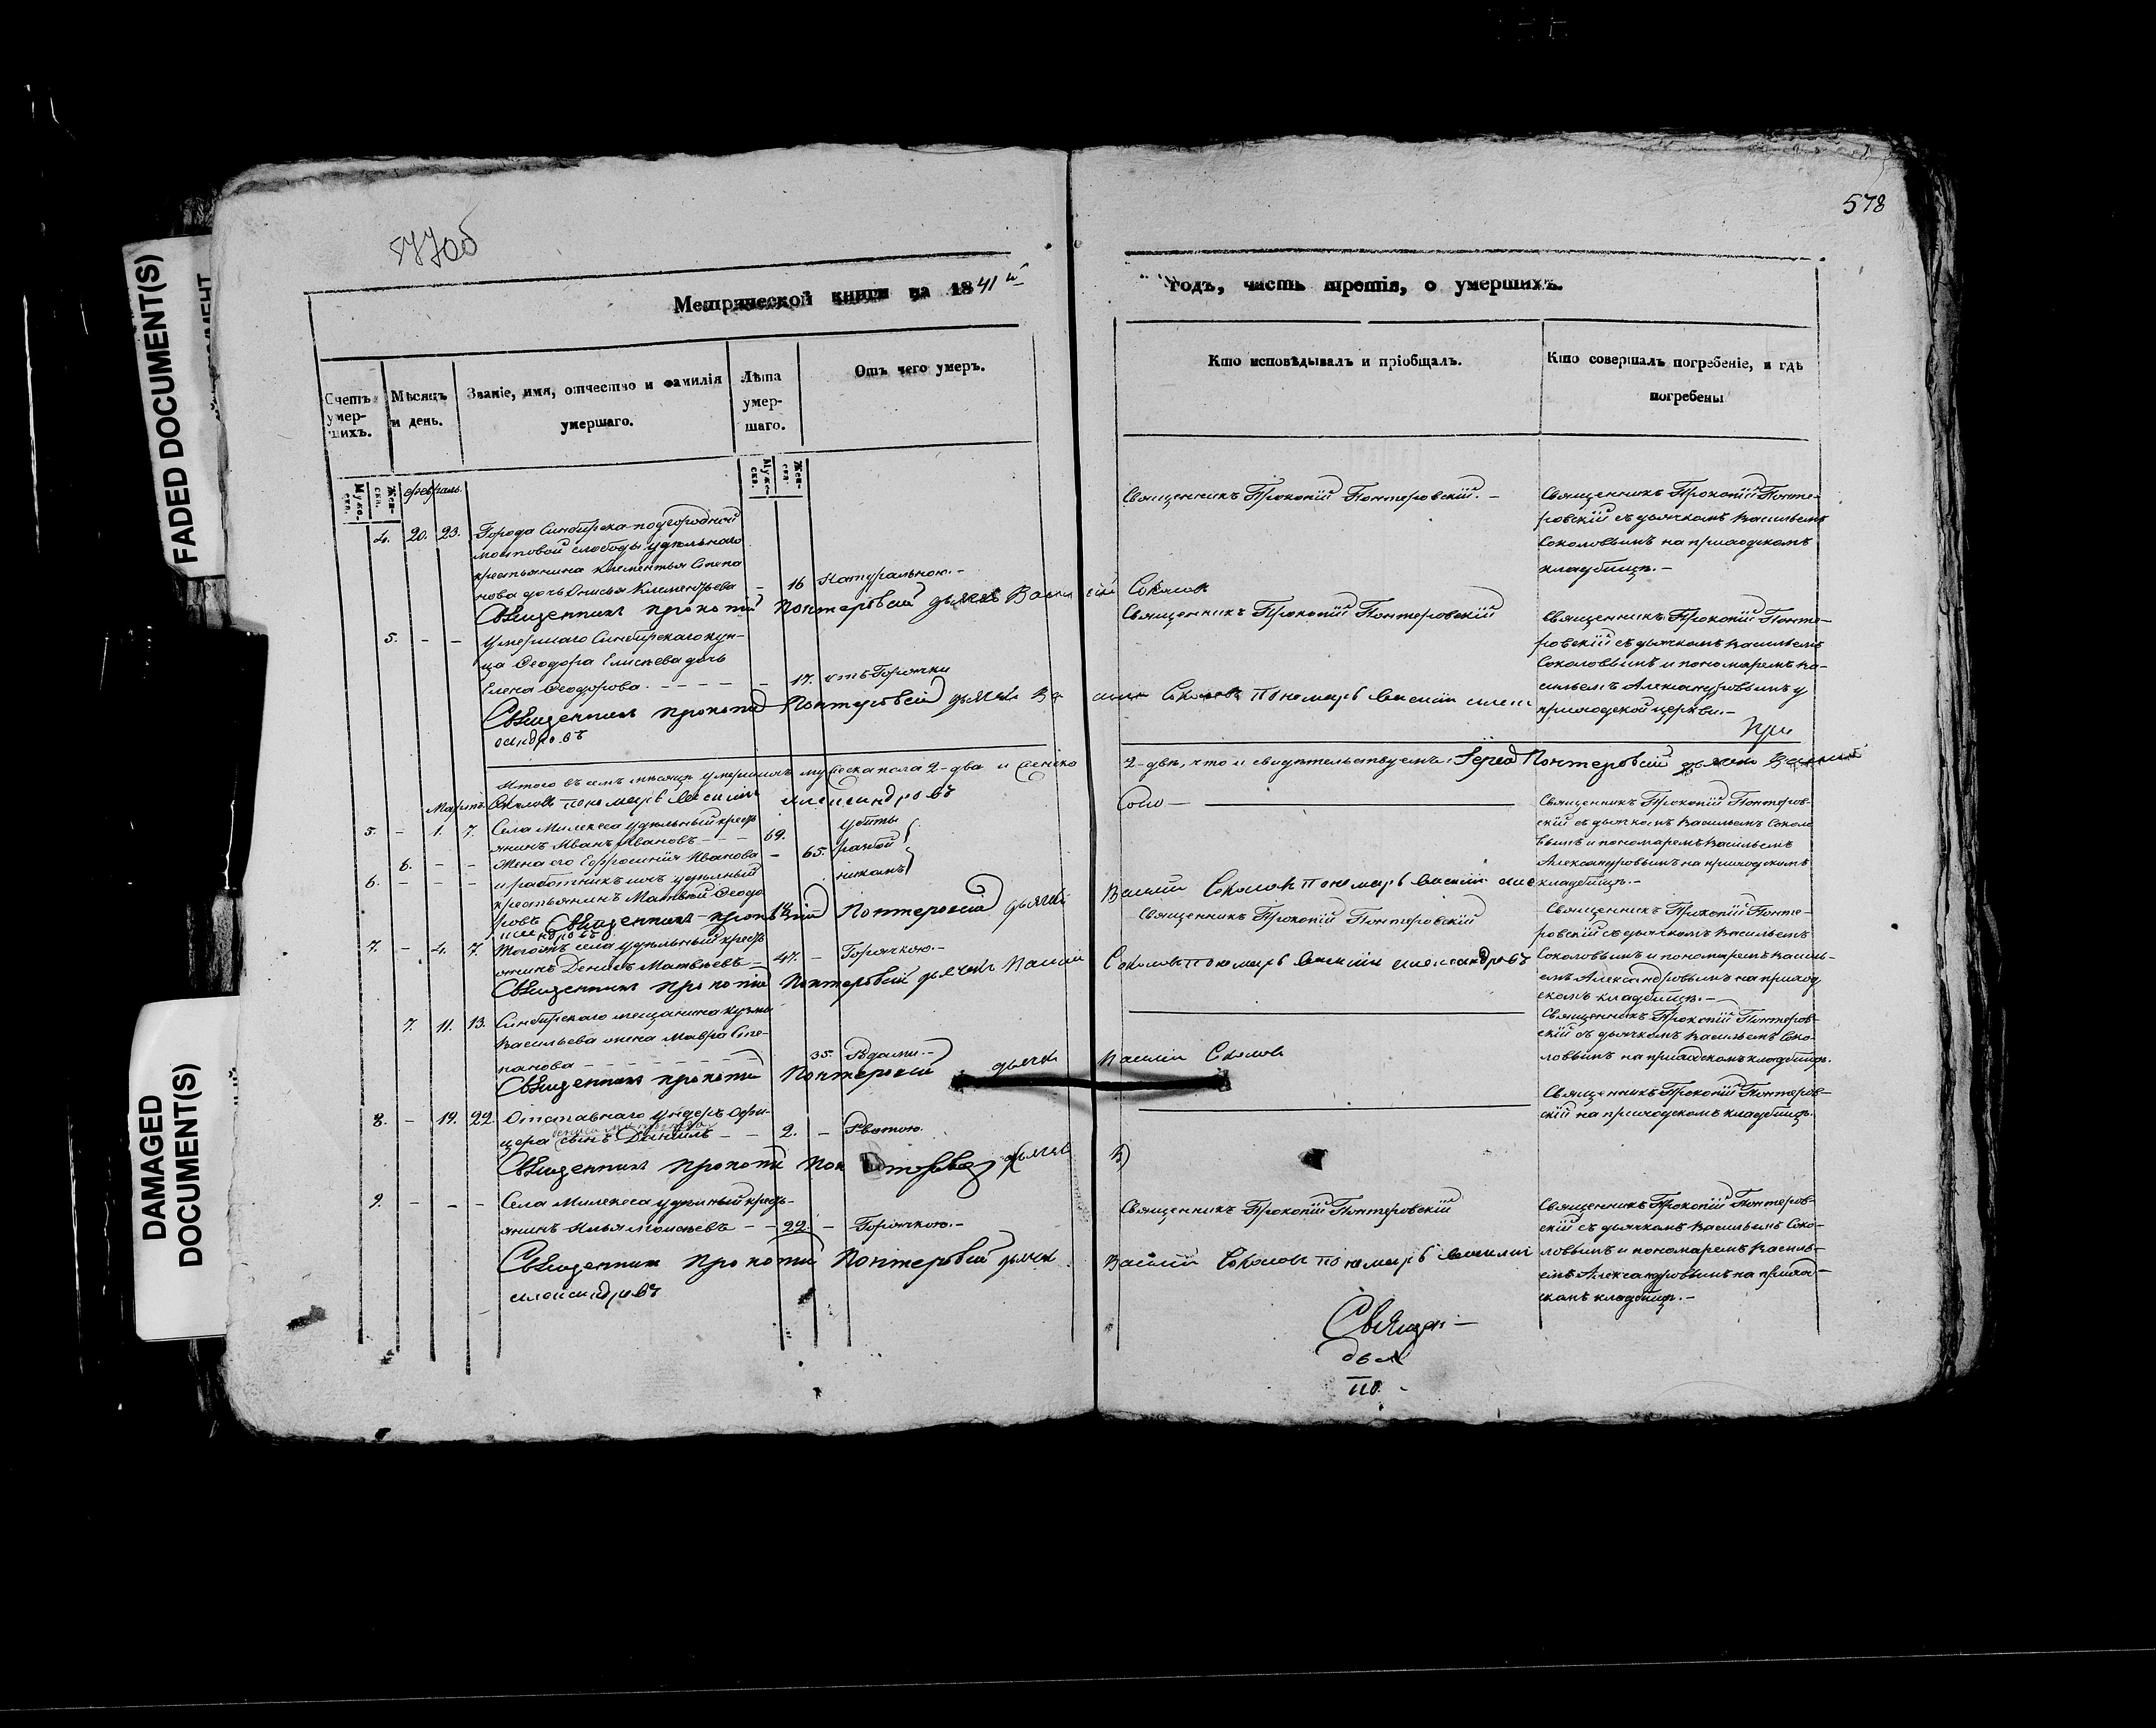 FADED DOCUMENT(S)
DAMAGED
DOCUMENT(S)
577об
578
Метрической книги на 1841й
годъ, часть третія, о умершихъ.
Счетъ умер-шихъ.
Мѣсяцъ и день.
Званіе, имя, отчество и фамилія умершаго.
Лѣта умер-шаго.
Отъ чего умеръ.
Кто исповѣдывалъ и пріобщалъ.
Кто совершалъ погребеніе, и гдѣ погребены
Муже-ска.
Жен-ска.
Муже-ска.
Жен-ска
февраль.
4. 20. 23. Города Синбирска подгородной
слободы удѣльнаго
крестьянина Климентья Степа
нова дочь Климентьева – 16 Натуральною.–
Священникъ Прокопій Понтеровскій.–
Священникъ Прокопій Понте-
ровскій съ дьячкомъ Васильемъ
Соколовымъ на приходскомъ
кладбищѣ.–
Священникъ Прокопій Понтеровскій дьячекъ Василій Соколовъ
5. – – Умершаго Синбирскаго куп-
ца Феодора Елисѣева дочь
Елена Феодорова. – – – – – 17. отъ Горячки
Священникъ Прокопій Понтеровскій
Священникъ Прокопій Понте-
ровскій съ дьячкомъ Васильемъ
Соколовымъ и пономаремъ Ва-
сильемъ Александровымъ у
приходской церкви.–
Священникъ Прокопій Понтеровскій дьячекъ Василій Соколовъ Пономарь Василій Алек
сандровъ
При
Итого въ семъ мѣсяцѣ умершихъ мужеска пола 2– два и женско
2– двѣ, что и свидѣтельствуемъ: Іерей Понтеровскій дьячекъ Василій
Соколовъ пономарь Василій Александровъ
Соко–
Мартъ
5. – 1. 7. Села Милекеса удѣльный крест
янинъ Иванъ Ивановъ – – 69. убиты
6. – – Жена его Ефросинія Иванова – 65. разбой
6. – – – и работникъ ихъ удѣлный никамъ
крестьянинъ Матвей Феодо
ровъ
Священникъ Прокопій Понтеров-
скій съ дьячкомъ Васильемъ Соколо
вымъ и пономаремъ Васильемъ
Александровымъ на приходскомъ
кладбищѣ.–
Священникъ Прокопій Понтеровскій дьячекъ Василій Соколовъ Пономарь Василій Алек
сандровъ
7. – 4. 7. Тогожъ села удѣльный крест
янинъ Денисъ Матвѣевъ – 47. – Горячкою.–
Священникъ Прокопій Понтеровскій
Священникъ Прокопій Понте-
ровскій съ дьячкомъ Васильемъ
Соколовымъ и пономаремъ Василь-
емъ Александровымъ на приход
скомъ кладбищѣ.–
Священникъ Прокопій Понтеровскій дьячекъ Василій Соколовъ пономарь Василій Александровъ
7. 11. 13. Синбирскаго мещанина Кузмы
Васильева жена Мавра Сте-
панова – – – – – – – 35. Родами.–
Священникъ Прокопій Понтеров-
скій съ дьячкомъ Васильемъ Соко-
ловымъ на приходскомъ кладбищѣ.
Священникъ Прокопій Понтеровскій дьячекъ Василій Соколовъ
8. – 19. 22. Отставнаго ундеръ Офи-
цера сынъ Даніилъ – – 2. – Рвотою.
Священникъ Прокопій Понтеров-
скій на приходскомъ кладбищѣ.
Священникъ Прокопій дьячекъ В
9. – – – Села Милекеса удѣлный крест-
янинъ Илья Моисѣевъ – – 22. – Горячкою.–
Священникъ Прокопій Понтеровскій
Священникъ Прокопій Понтеров-
скій съ дьячкомъ Васильемъ Соко-
ловымъ и пономаремъ Василь-
емъ Александровымъ на приход-
скомъ кладбищѣ.–
Священникъ Прокопій Понтеровскій дьячекъ Василій Соколовъ Пономарь Василій
Александровъ
Священ–
дья
по